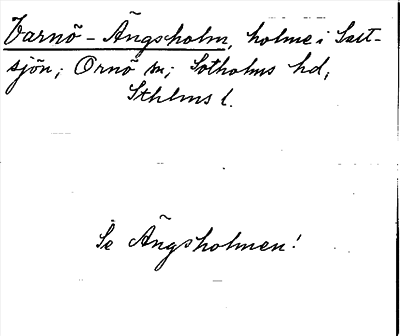 Varnö-Ängsholm, holme i Salt-
sjön; Ornö sn; Sotholms hd,
Sthlms l.
Se Ängsholmen!